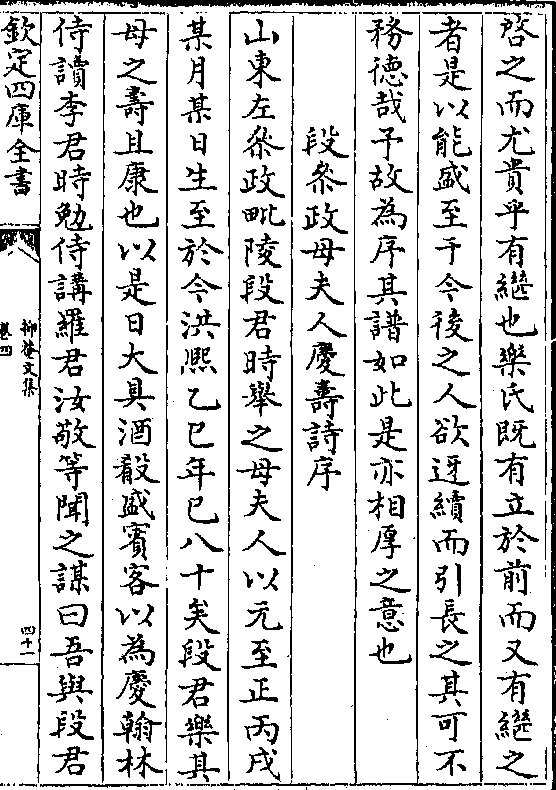 啓之而尤貴乎有繼也樂氏既有立於前而又有繼之
者是以能盛至于今後之人欲迓續而引長之其可不
務德哉予故為序其譜如此是亦相厚之意也
段叅政母夫人慶壽詩序
山東左叅政毗陵段君時舉之母夫人以元至正丙戌
某月某日生至於今洪熈乙巳年已八十矣段君樂其
母之壽且康也以是日大具酒殽盛賓客以為慶翰林
侍讀李君時勉侍講羅君汝敬等聞之謀曰吾與段君
欽定四庫全書
抑菴文集
卷四
四十一